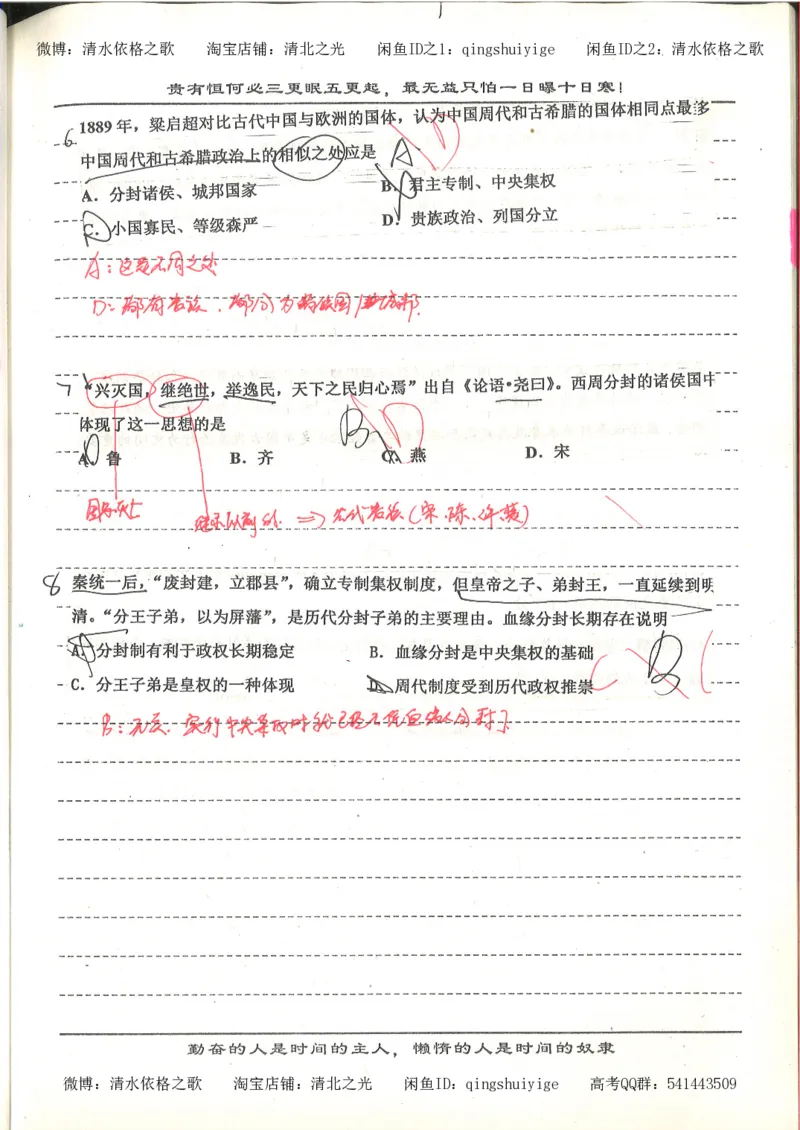 微博：清水依格之歌 淘宝店铺：清北之光 闲鱼ID之1：qingshuiyige 闲鱼ID之2：清水依格之歌
贵有恒何必三更眠五更起，最无益只怕一日曝十日寒！
6 1889年，梁启超对比古代中国与欧洲的国体，认为中国周代和古希腊的国体相同点最多
中国周代和古希腊政治上的相似之处应是 A D
A．分封诸侯、城邦国家 B．君主专制、中央集权
C．小国寡民、等级森严 D．贵族政治、列国分立
A：这是不同之处
D：都有贵族，都分为
7 “兴灭国，继绝世，举逸民，天下之民归心焉”出自《论语·尧曰》。西周分封的诸侯国中
体现了这一思想的是 B D
A．鲁 B．齐 C．燕 D．宋
国家灭亡
⇒ 古代贵族（宋、陈、许、
8 秦统一后，“废封建，立郡县”，确立专制集权制度，但皇帝之子、弟封王，一直延续到明
清。“分王子弟，以为屏藩”，是历代分封子弟的主要理由。血缘分封长期存在说明
A．分封制有利于政权长期稳定 B．血缘分封是中央集权的基础
C．分王子弟是皇权的一种体现 D．周代制度受到历代政权推崇 C B
B：无关，实行中央集权时就已经不凭血缘分封了
勤奋的人是时间的主人，懒惰的人是时间的奴隶
微博：清水依格之歌 淘宝店铺：清北之光 闲鱼ID：qingshuiyige 高考QQ群：541443509